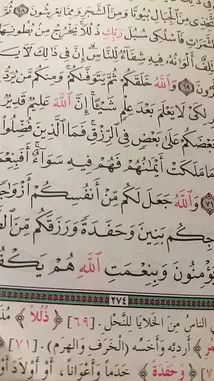 مِنَ ٱلْجِبَالِ بُيُوتًا وَمِنَ ٱلشَّجَرِ وَمِمَّا يَعْرِشُونَ ٦٨
فَٱسْلُكِى سُبُلَ رَبِّكِ ذُلُلًا يَخْرُجُ مِنۢ بُطُونِهَا
أَلْوَٰنُهُۥ فِيهِ شِفَآءٌ لِّلنَّاسِ إِنَّ فِى ذَٰلِكَ
٦٩ وَٱللَّهُ خَلَقَكُمْ ثُمَّ يَتَوَفَّىٰكُمْ وَمِنكُم مَّن يُرَدُّ
لِكَىْ لَا يَعْلَمَ بَعْدَ عِلْمٍ شَيْـًٔا إِنَّ ٱللَّهَ عَلِيمٌ قَدِيرٌ
بَعْضَكُمْ عَلَىٰ بَعْضٍ فِى ٱلرِّزْقِ فَمَا ٱلَّذِينَ فُضِّلُوا۟
مَا مَلَكَتْ أَيْمَٰنُهُمْ فَهُمْ فِيهِ سَوَآءٌ أَفَبِنِعْمَـ
٧١ وَٱللَّهُ جَعَلَ لَكُم مِّنْ أَنفُسِكُمْ أَزْوَٰجًا
جِكُم بَنِينَ وَحَفَدَةً وَرَزَقَكُم مِّنَ
ؤْمِنُونَ وَبِنِعْمَتِ ٱللَّهِ هُمْ يَكْفُـ
٢٧٤
الناس مِنَ الخلايا لِلنَّحلِ. [٦٩] ﴿ذُلُلًا﴾
﴾ أردئه وأخسه (الخَرَف والهرم). [٧١]
﴿وَحَفَدَةً﴾ خدماً وأعواناً، أو أولاد